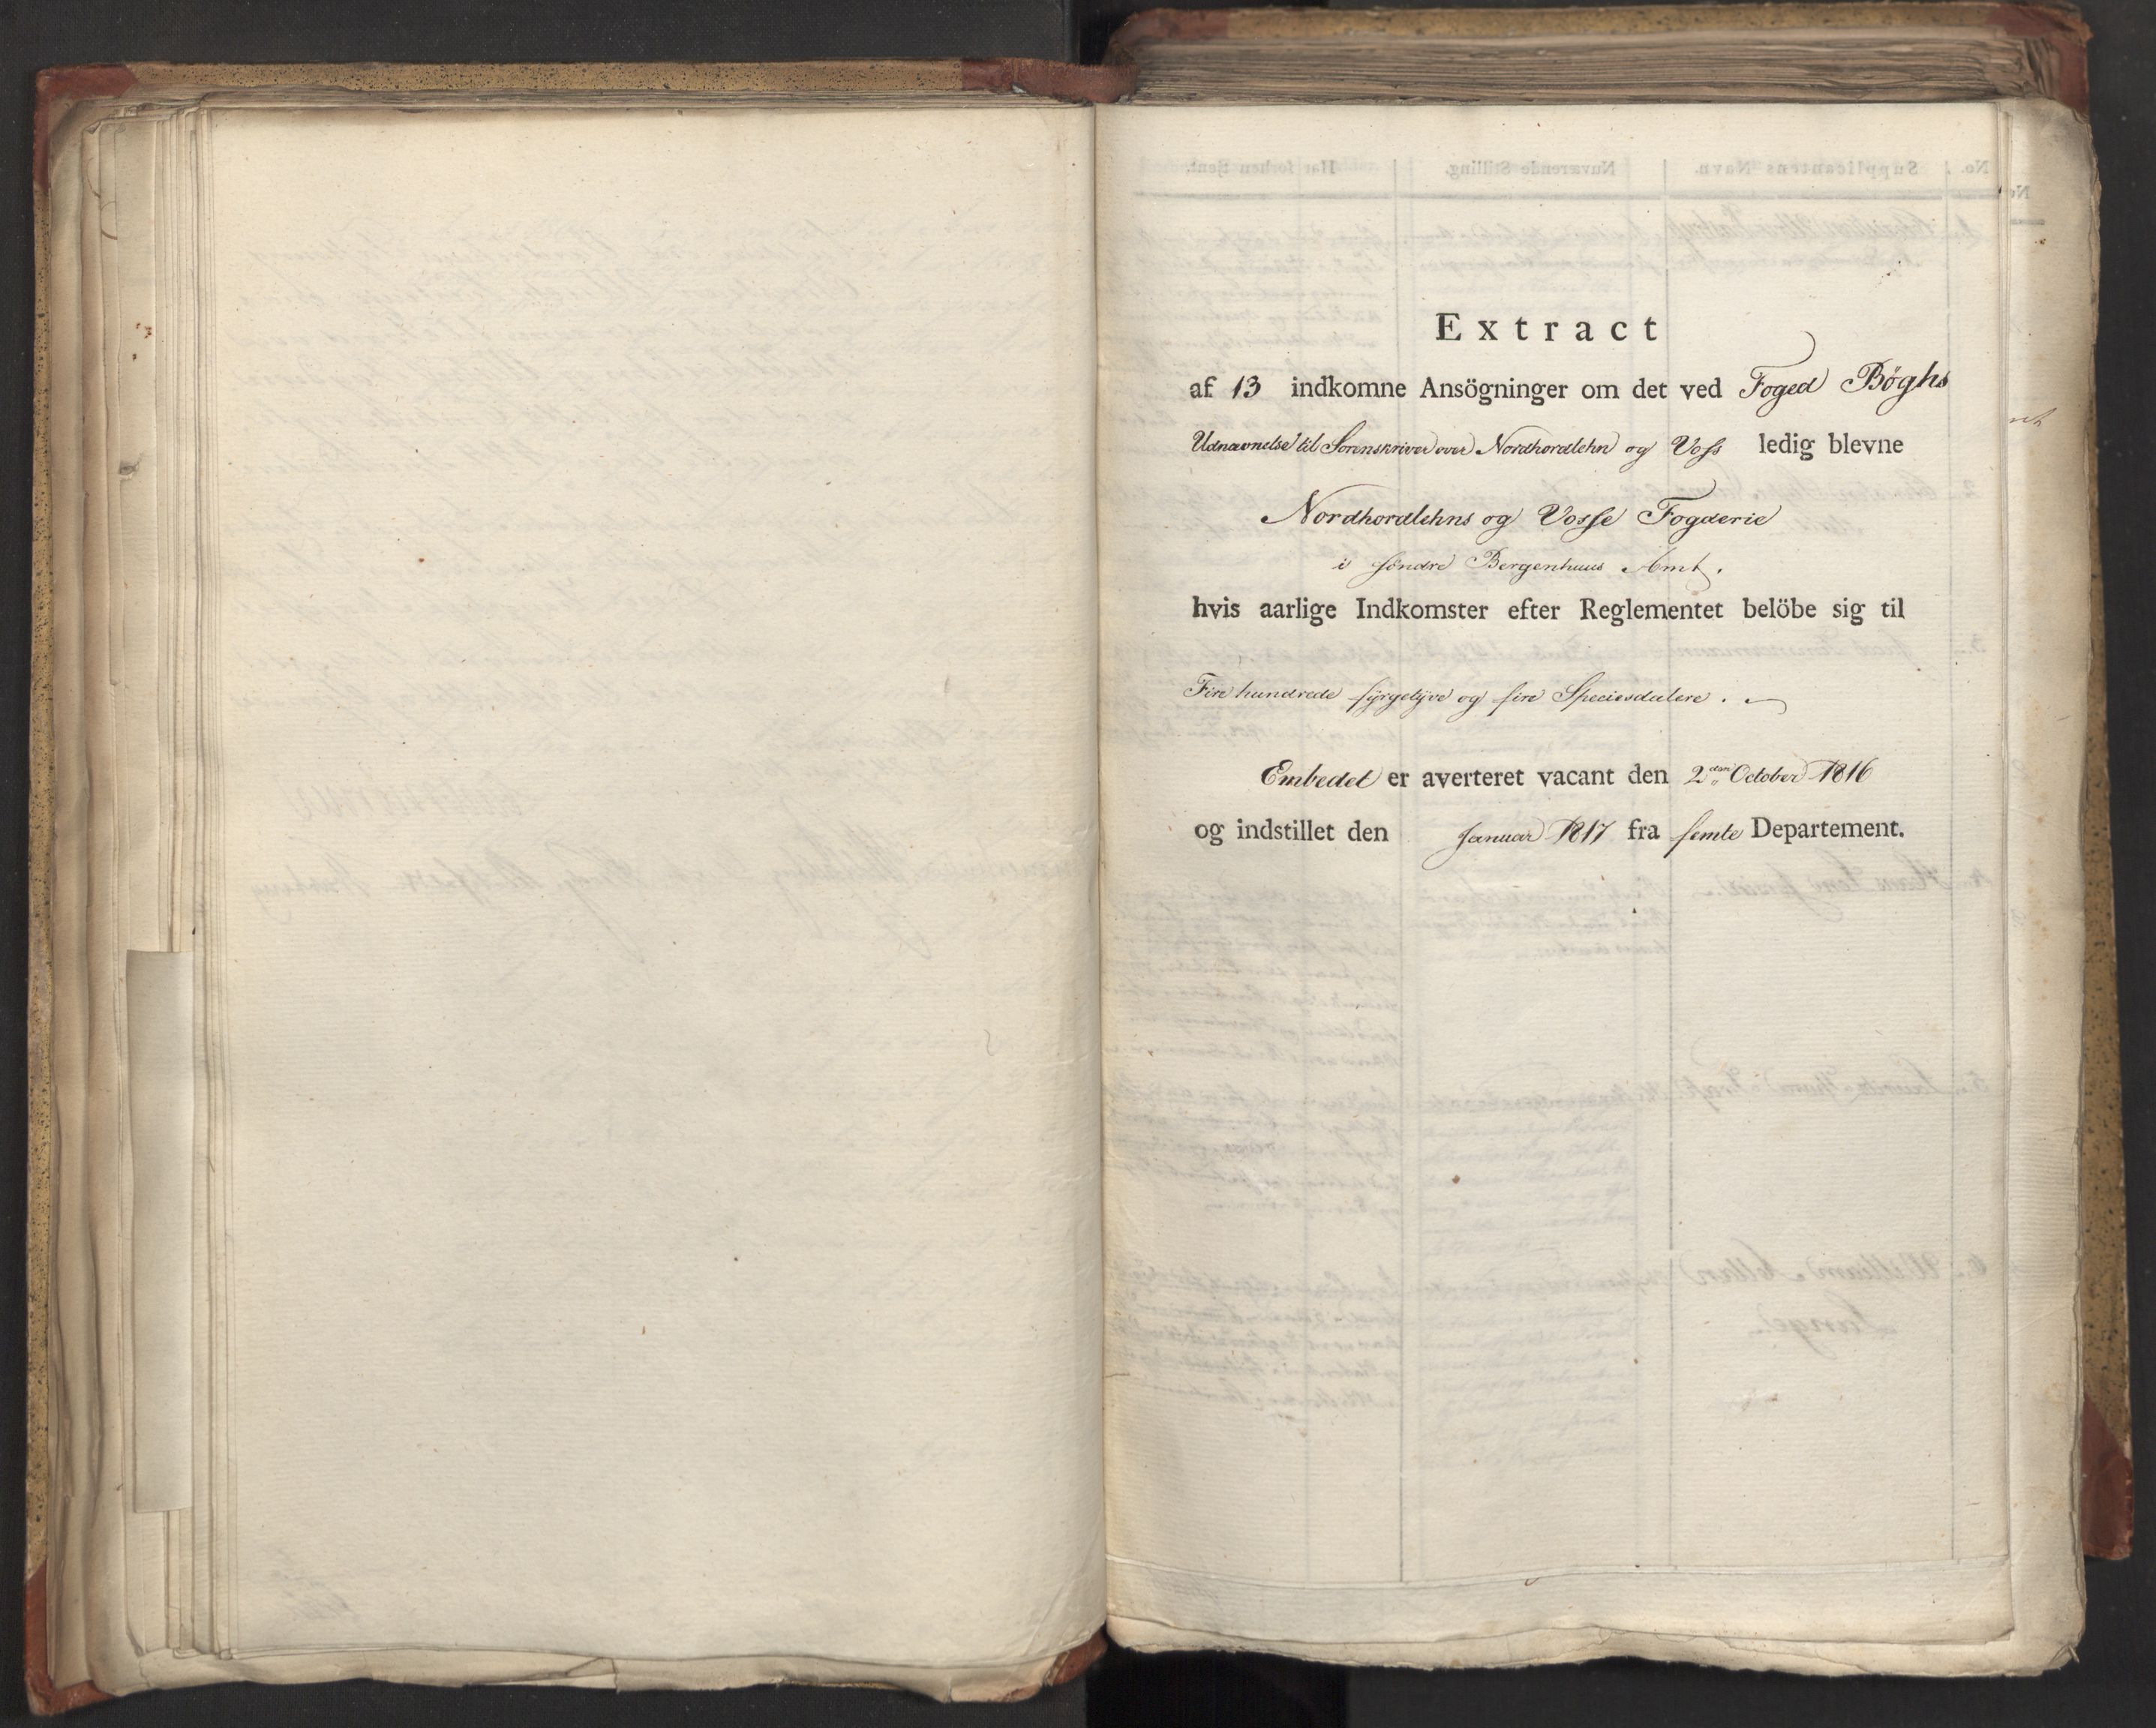 Extract
af 13 indkomne Ansögninger om det ved Foged Böghs
Udnævnelse til Sorenskriver over Nordhordlehn og Voss ledig blevne
Nordhordlehns og Vosse Fogderie
i söndre Bergenhuus Amt.
hvis aarlige Indkomster efter Reglementet belöbe sig til
Fire hundrede fyrgetyve og fire Speciesdalere.
Embedet er averteret vacant den 2den October 1816
og indstillet den Januar 1817 fra femte Departement.